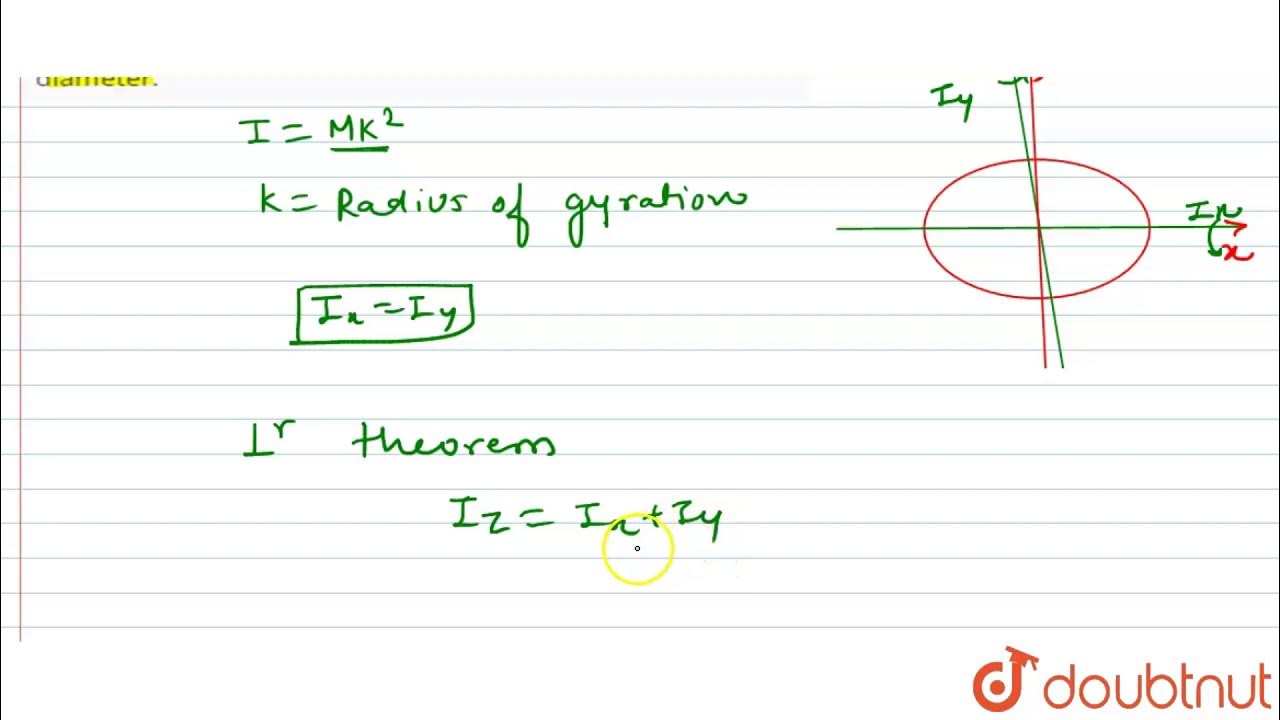 diameter.
I = MK²
K = Radius of gyration
Ix = Iy
⊥r theorem
Iz = Ix + Iy
Iy
Ix
x
doubtnut